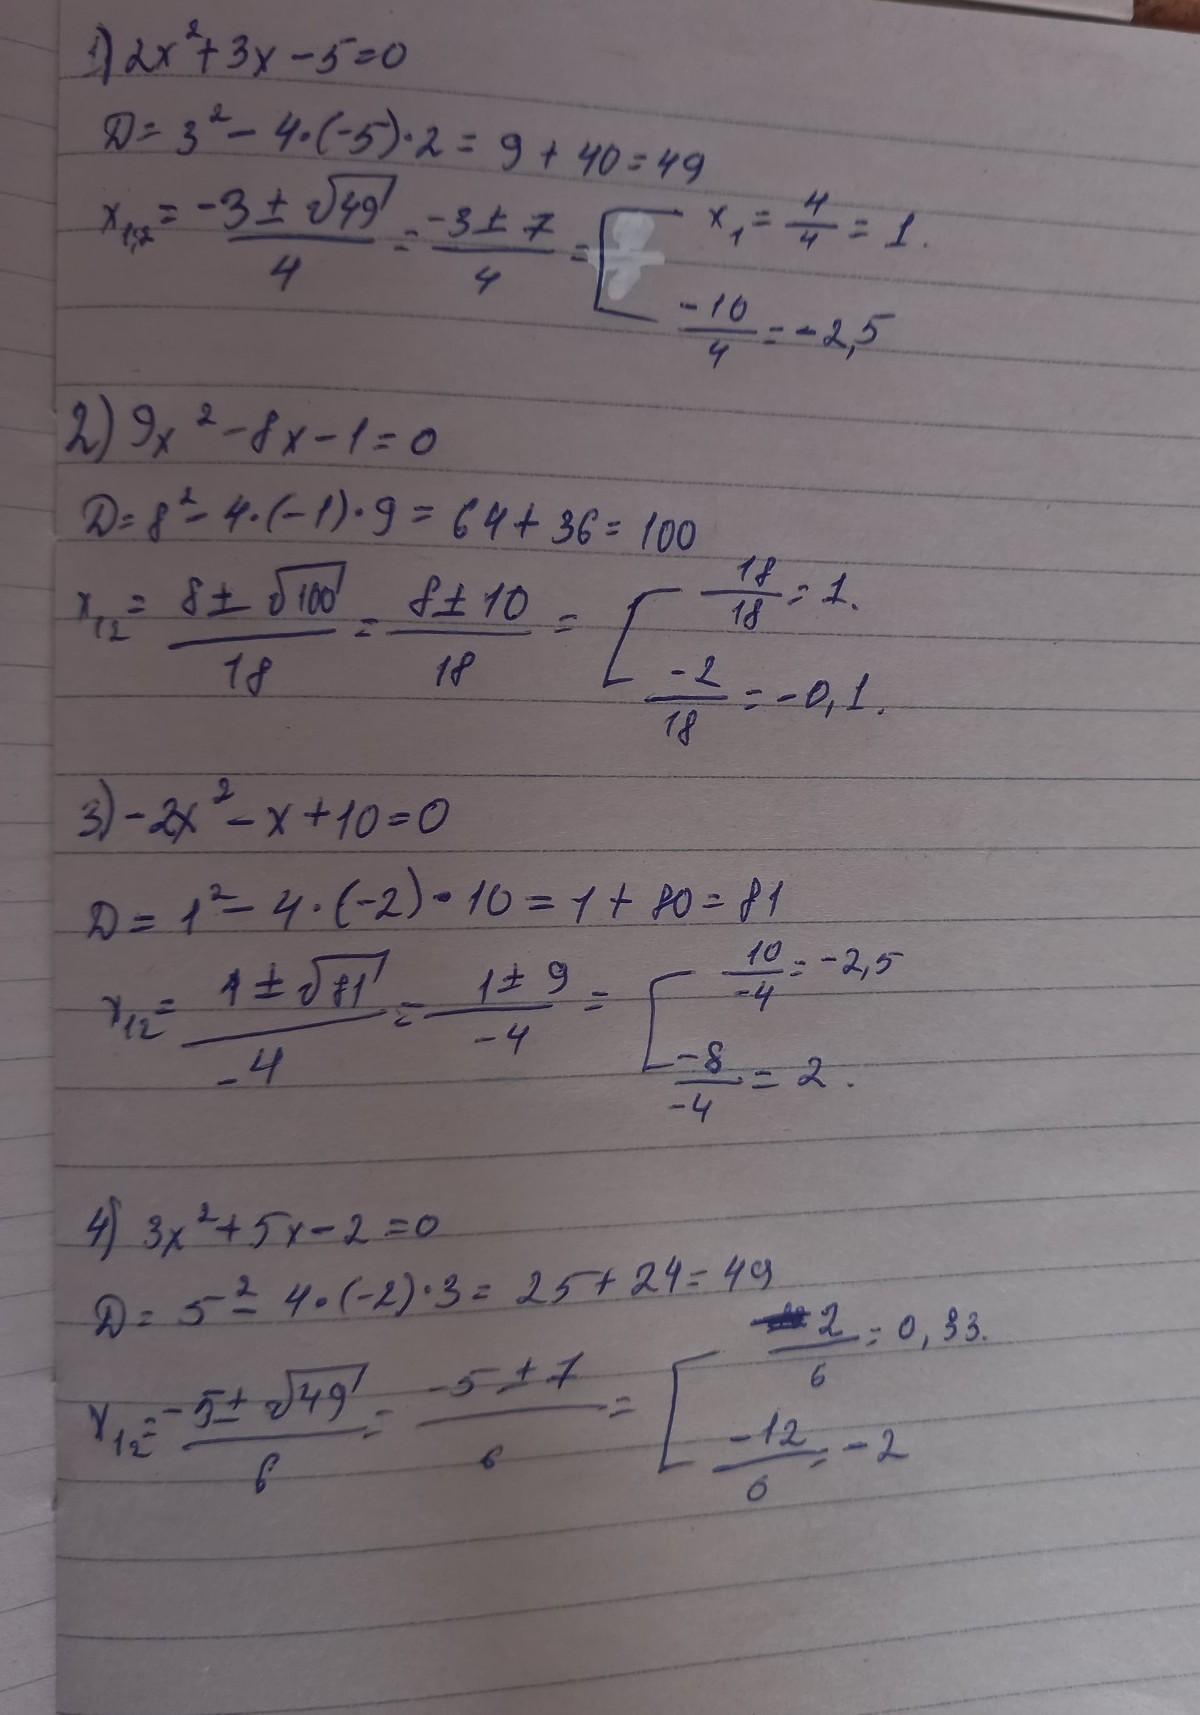 1) 2x² + 3x - 5 = 0
D = 3² - 4·(-5)·2 = 9 + 40 = 49
x₁,₂ = (-3 ± √49)/4 = (-3 ± 7)/4 = [ x₁ = 4/4 = 1.
-10/4 = -2,5
2) 9x² - 8x - 1 = 0
D = 8² - 4·(-1)·9 = 64 + 36 = 100
x₁₂ = (8 ± √100)/18 = (8 ± 10)/18 = [ 18/18 = 1.
-2/18 = -0,1.
3) -2x² - x + 10 = 0
D = 1² - 4·(-2)·10 = 1 + 80 = 81
x₁₂ = (1 ± √81)/-4 = (1 ± 9)/-4 = [ 10/-4 = -2,5
-8/-4 = 2.
4) 3x² + 5x - 2 = 0
D = 5² - 4·(-2)·3 = 25 + 24 = 49
x₁₂ = (-5 ± √49)/6 = (-5 ± 7)/6 = [ 2/6 = 0,33.
-12/6 = -2